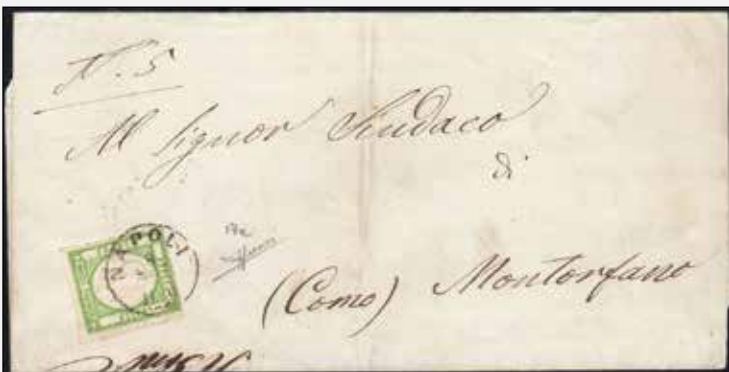 N. 5
Al Signor Sindaco
di
(Como) Montorfano
NAPOLI